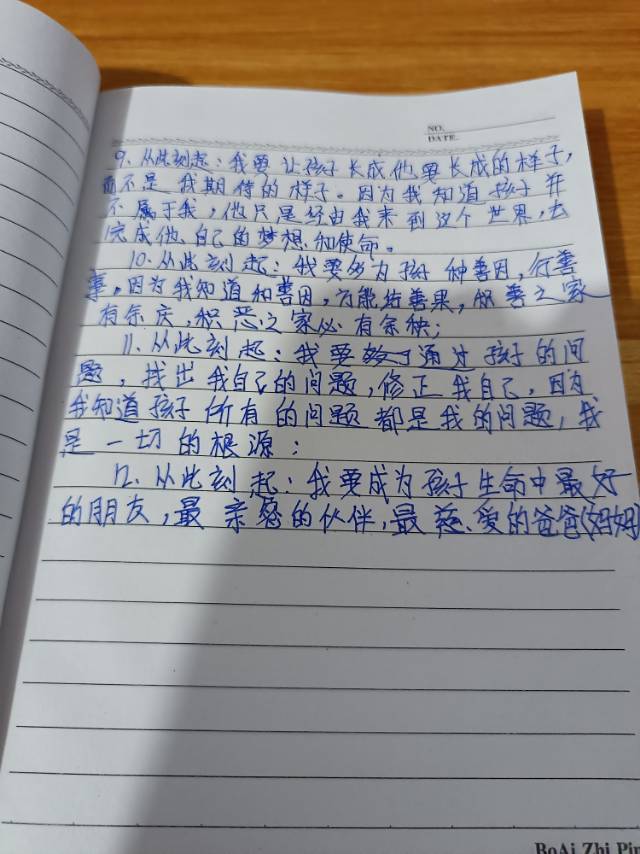 NO.
DATE.
9. 从此刻起：我要让孩子长成他要长成的样子，
而不是我期待的样子。因为我知道孩子并
不属于我，他只是经由我来到这个世界，去
完成他自己的梦想和使命。
10. 从此刻起：我要多为孩子种善因，行善
事，因为我知道和善因，方能结善果，积善之家
有余庆，积恶之家必有余秧；
11. 从此刻起：我要 通过孩子的问
题，找出我自己的问题，修正我自己，因为
我知道孩子所有的问题都是我的问题，我
是一切的根源；
12. 从此刻起：我要成为孩子生命中最好
的朋友，最亲密的伙伴，最慈爱的爸爸（妈妈）
BoAi Zhi Pin